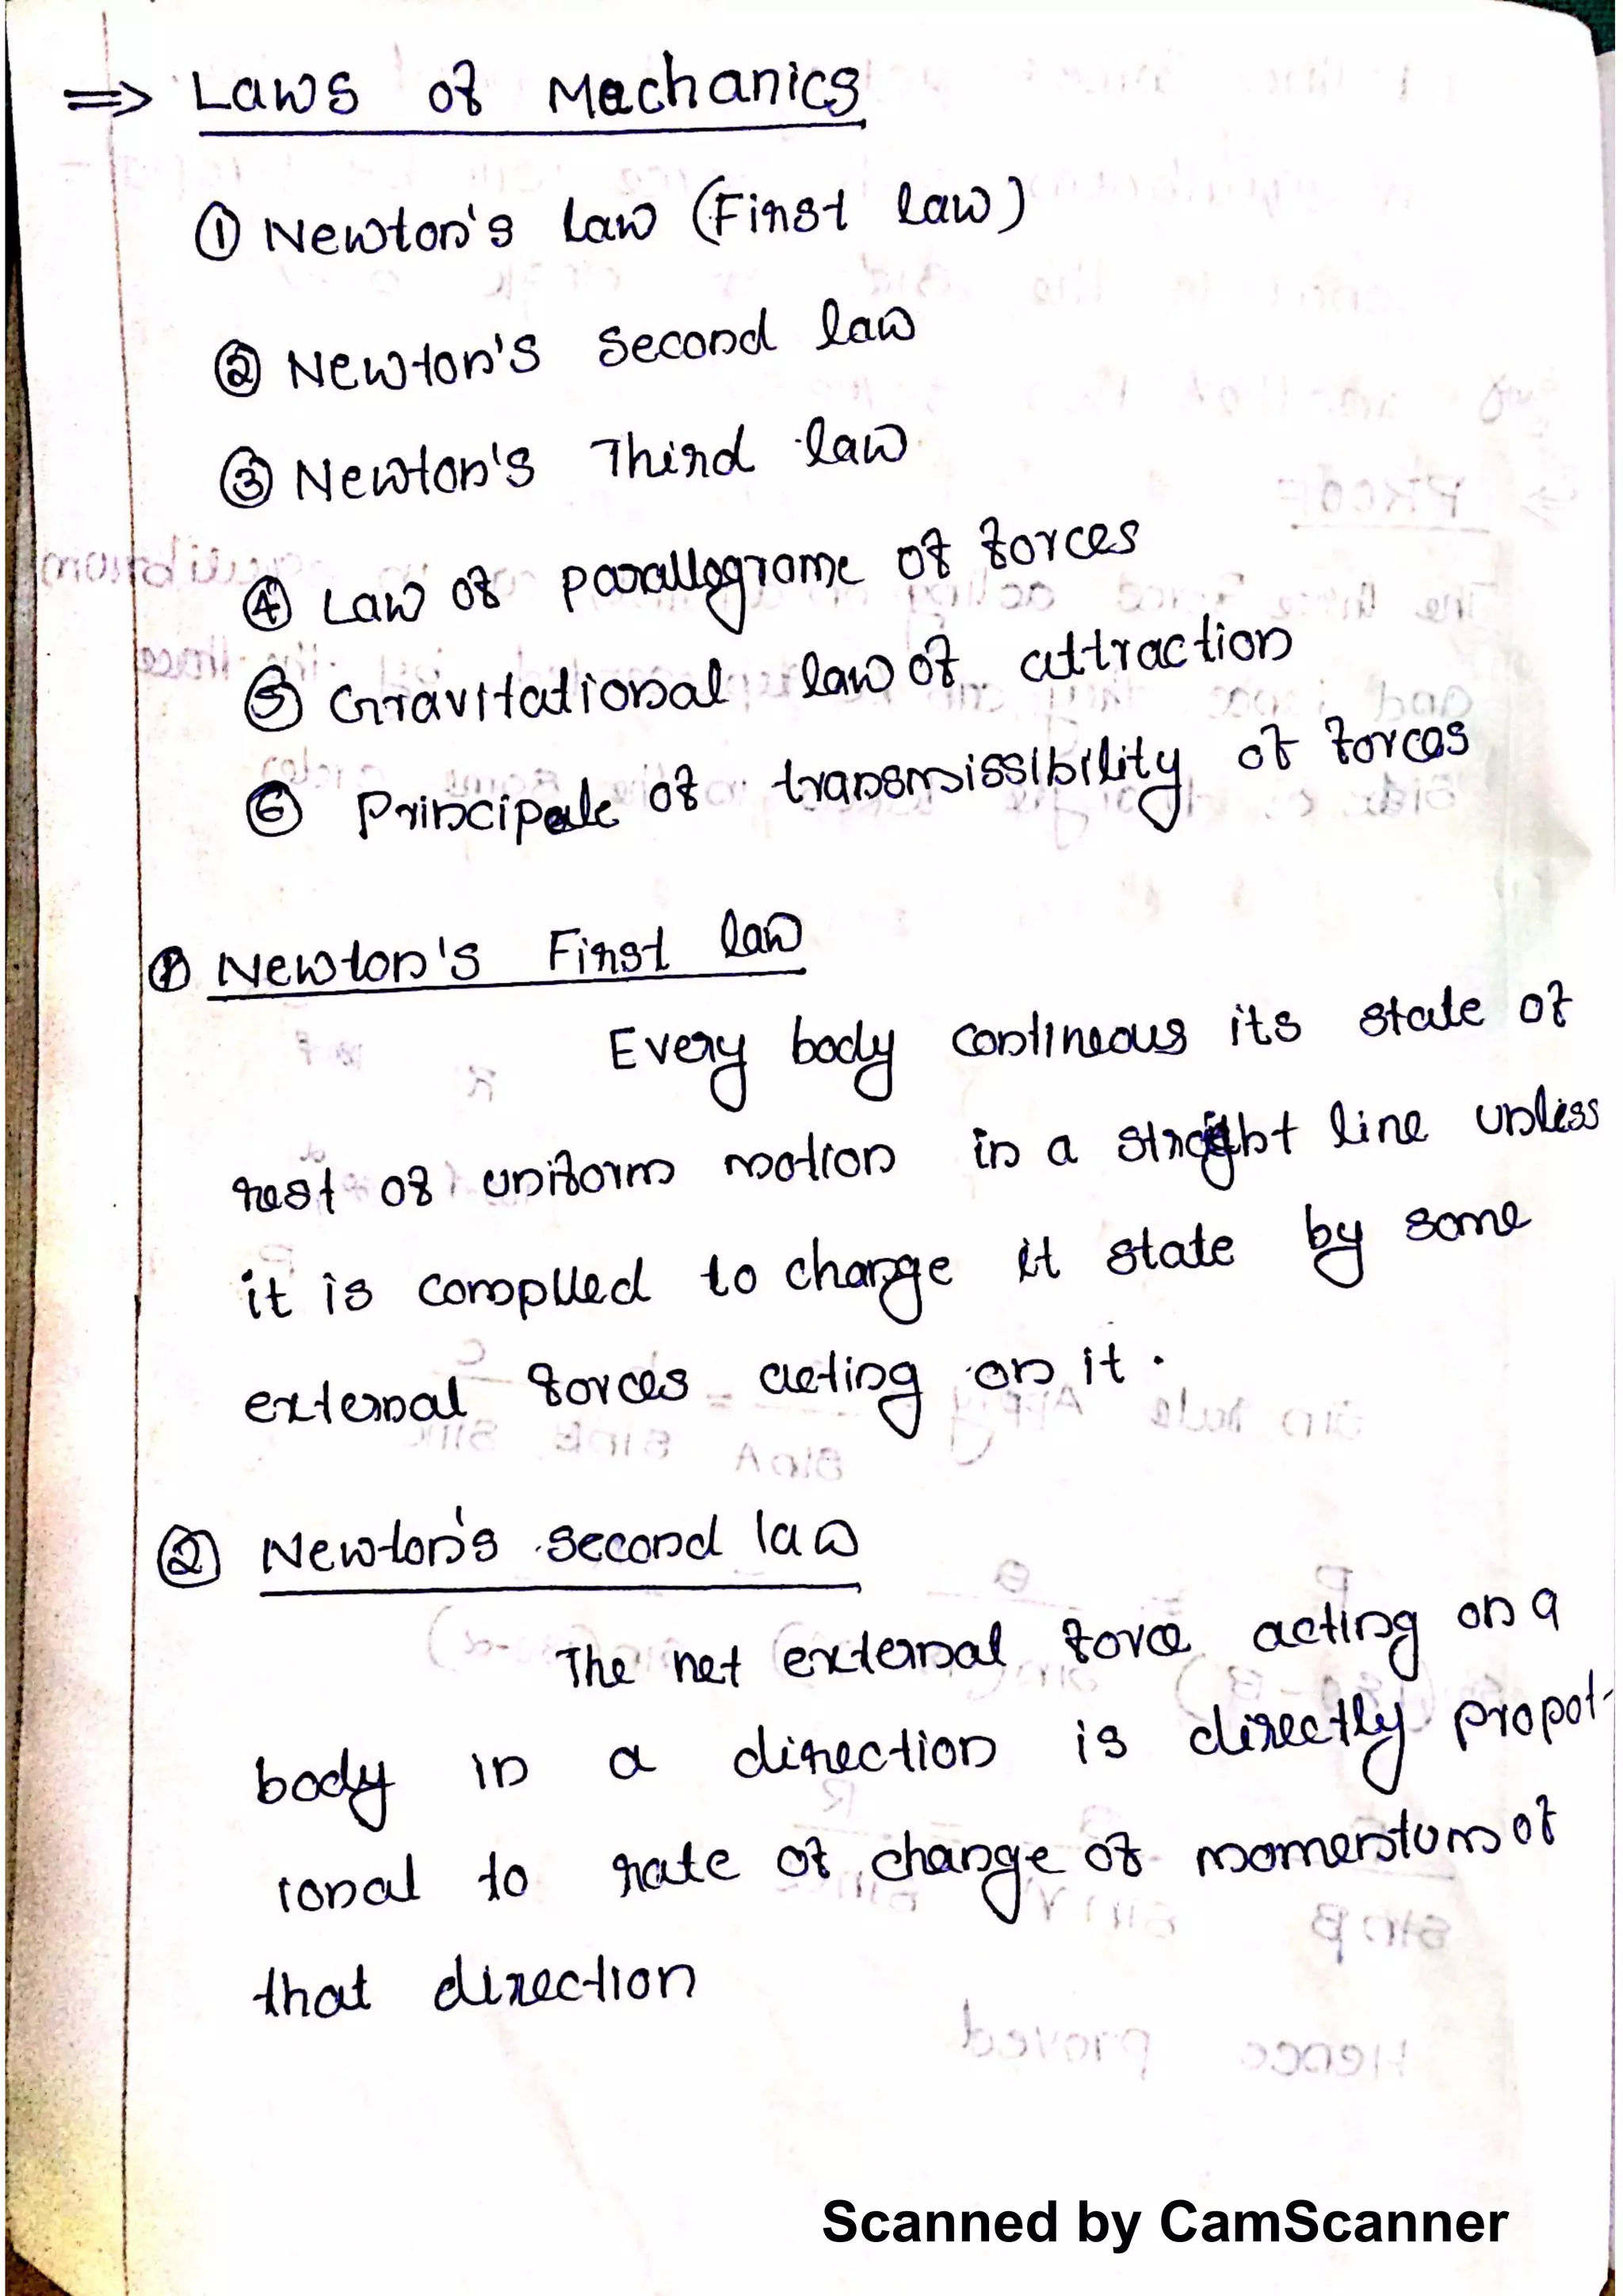 ⇒ Laws of Mechanics
① Newton's Law (First law)
② Newton's Second law
③ Newton's Third law
④ Law of parallogrome of forces
⑤ Gravitational law of attraction
⑥ Principale of transmissibility of forces
① Newton's First law
Every body contineous its state of
rest of uniform motion in a straight line unless
it is complled to change it state by some
external forces acting on it.
② Newton's second law
The net external force acting on a
body in a direction is directly propot-
ional to rate of change of momentum of
that direction
Scanned by CamScanner